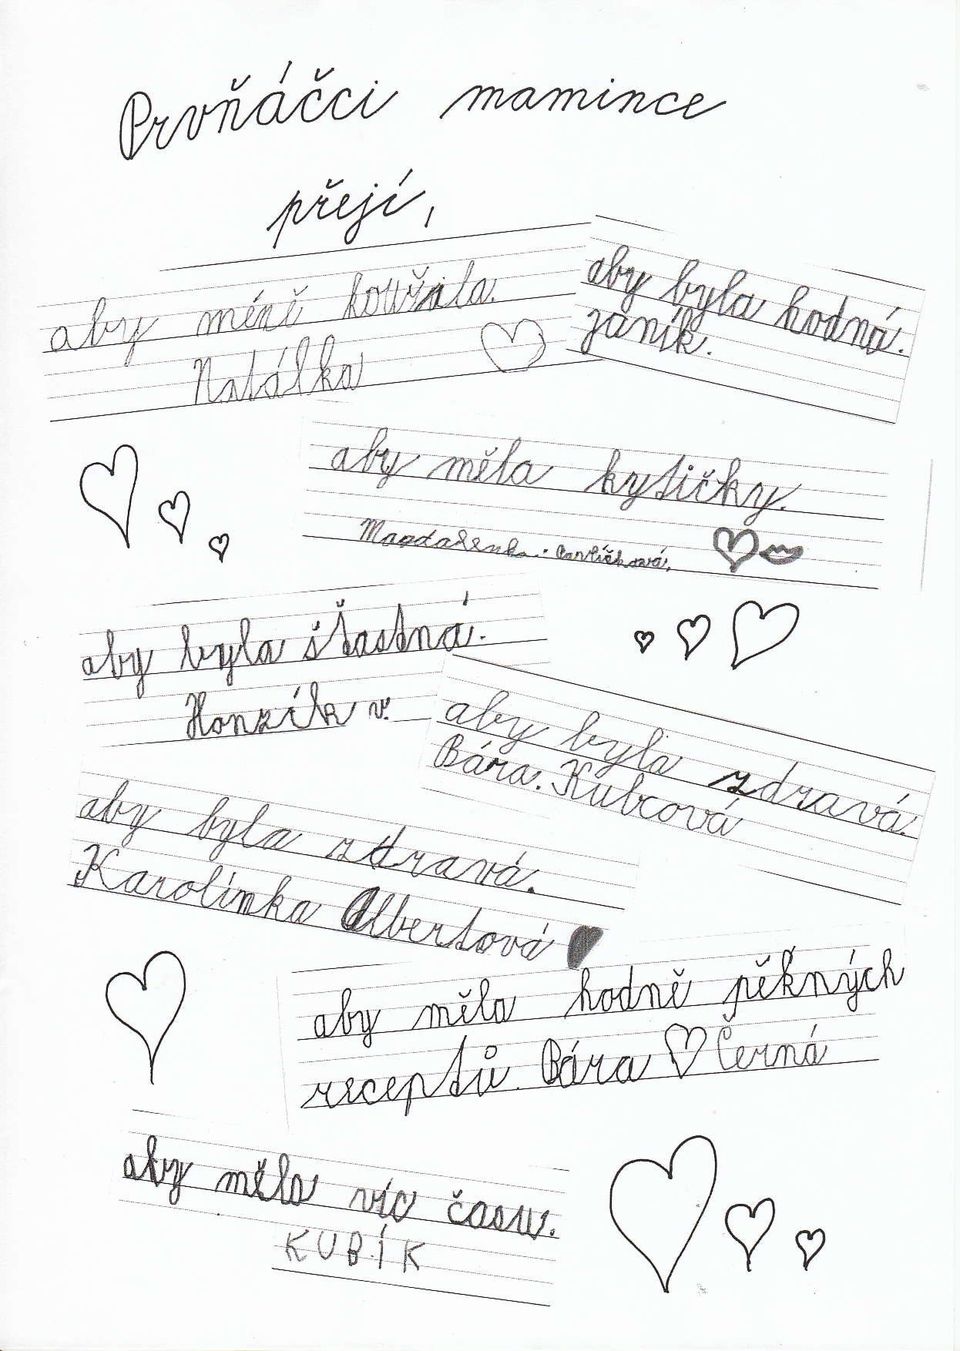 Prvňáčci mamince
přejí,
aby méně kouřila.
Natálka
aby byla hodná.
Janík.
aby měla kytičky.
Magdalenka
aby byla šťastná.
Honzík v.
aby byla zdravá.
Bára. Kubcová
aby byla zdravá.
Karolínka Albertová
aby měla hodně pěkných
receptů. Bára Černá
aby měla víc času.
KUBÍK